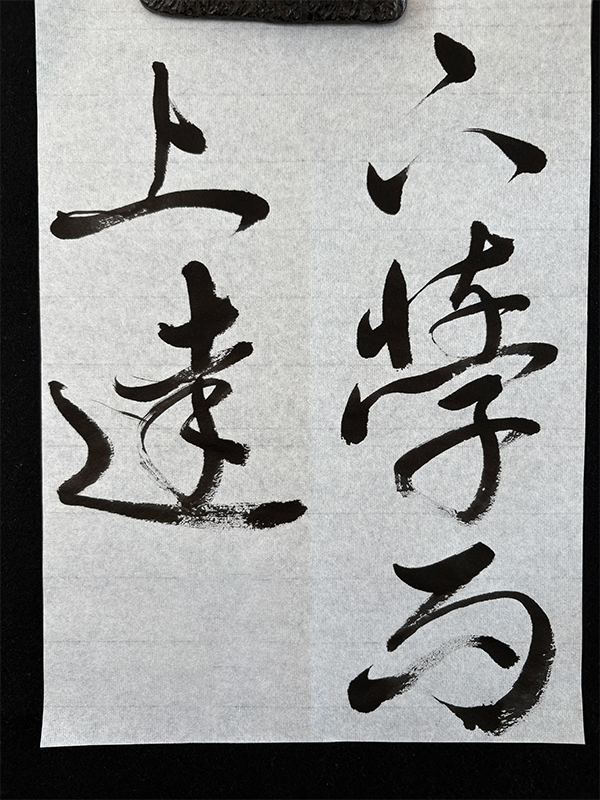 下學而
上達